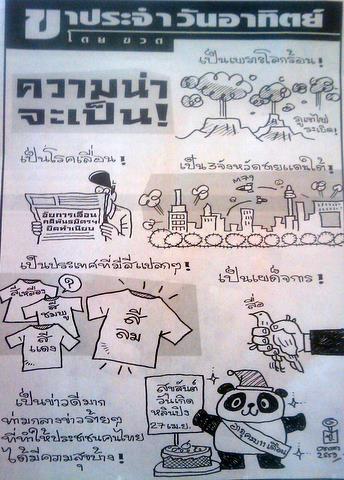 ขาประจำวันอาทิตย์
โดย ขวด
ความน่า
จะเป็น!
เป็นเพราะโลกร้อน!
ภูเขาไฟ
ระเบิด!
เป็นโรคเลื่อน!
อัยการเลื่อน
คดีพันธมิตรฯ
ยึดทำเนียบ
เป็น 3 จังหวัดชายแดนใต้!
M79
เป็นประเทศที่มีสีแปลกๆ!
สีเหลือง
สีชมพู
สีแดง
?
สีลม
เป็นเผด็จการ!
สื่อ
เป็นข่าวดีมาก
ท่ามกลางข่าวร้ายๆ
ที่ทำให้ประชาชนคนไทย
ได้มีความสุขบ้าง!
สุขสันต์
วันเกิด
หลินปิง
27 เม.ย.
อายุครบ 11 เดือน